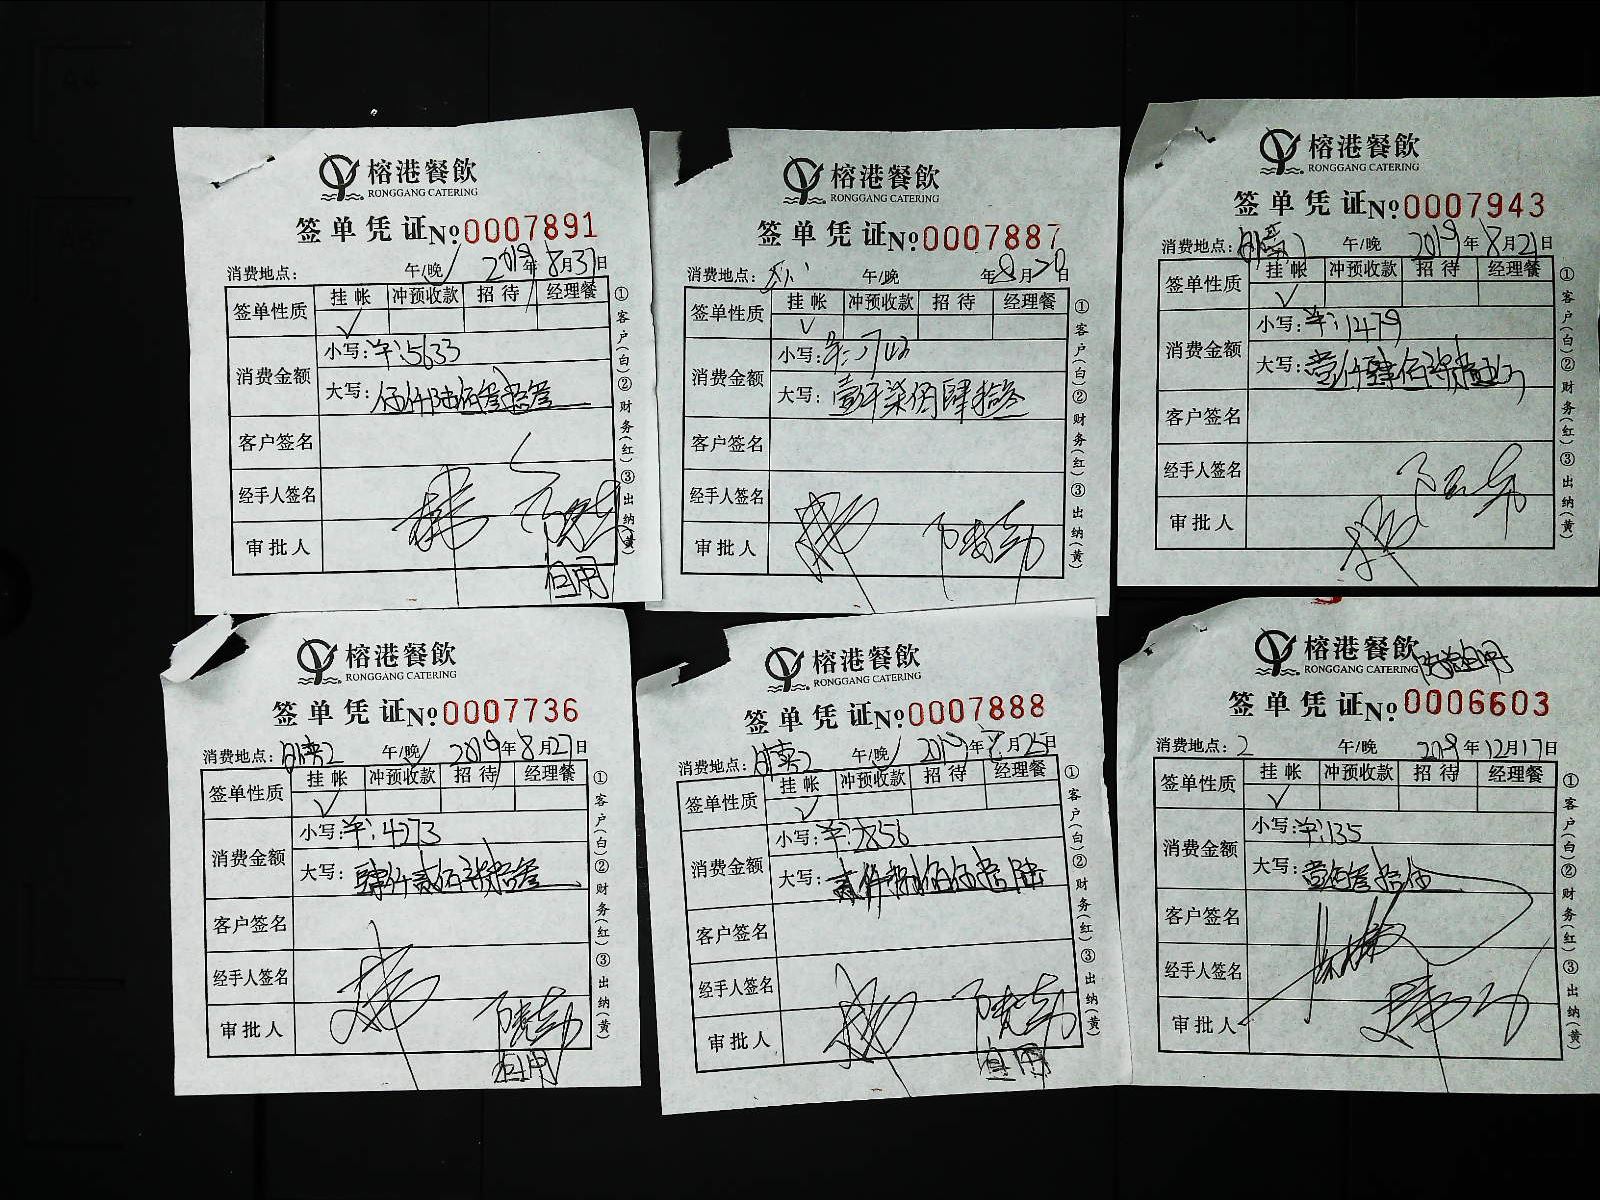 榕港餐飲
RONGGANG CATERING
签单凭证 No 0007891
消费地点: 午/晚 2019年8月31日
签单性质 挂帐 冲预收款 招待 经理餐
✓
消费金额 小写:羊:5633
大写:伍仟陆佰叁拾叁
客户签名
经手人签名
审批人
自用
①客户(白)②财务(红)③出纳(黄)
榕港餐飲
RONGGANG CATERING
签单凭证 No 0007887
消费地点: 午/晚 年8月20日
签单性质 挂帐 冲预收款 招待 经理餐
✓
消费金额 小写:
大写:壹仟柒佰肆拾叁
客户签名
经手人签名
审批人
①客户(白)②财务(红)③出纳(黄)
榕港餐飲
RONGGANG CATERING
签单凭证 No 0007943
消费地点: 午/晚 2019年8月21日
签单性质 挂帐 冲预收款 招待 经理餐
✓
消费金额 小写:羊:1479
大写:壹仟肆佰柒拾玖
客户签名
经手人签名
审批人
①客户(白)②财务(红)③出纳(黄)
榕港餐飲
RONGGANG CATERING
签单凭证 No 0007736
消费地点: 午/晚 2019年8月27日
签单性质 挂帐 冲预收款 招待 经理餐
✓
消费金额 小写:羊:4273
大写:肆仟贰佰柒拾叁
客户签名
经手人签名
审批人
自用
①客户(白)②财务(红)③出纳(黄)
榕港餐飲
RONGGANG CATERING
签单凭证 No 0007888
消费地点: 午/晚 2019年 月25日
签单性质 挂帐 冲预收款 招待 经理餐
✓
消费金额 小写:羊:2856
大写:贰仟捌佰伍拾陆
客户签名
经手人签名
审批人
自用
①客户(白)②财务(红)③出纳(黄)
榕港餐飲
RONGGANG CATERING
签单凭证 No 0006603
消费地点:2 午/晚 年12月17日
签单性质 挂帐 冲预收款 招待 经理餐
✓
消费金额 小写:羊:135
大写:壹佰叁拾伍
客户签名
经手人签名
审批人
①客户(白)②财务(红)③出纳(黄)